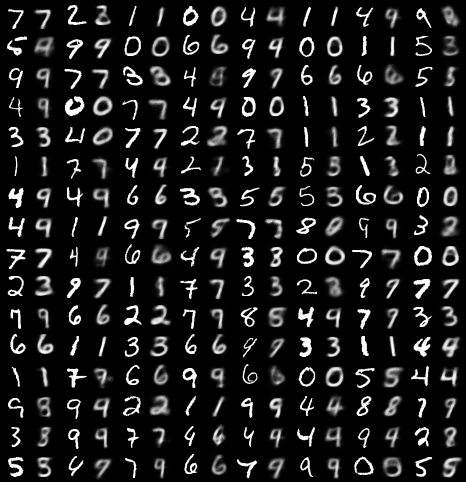 7 7 2 2 1 1 0 0 4 4 1 1 4 9 9
5 9 9 9 0 0 6 6 9 9 0 0 1 1 5 3
9 9 7 7 3 3 4 9 7 6 6 6 5 5
4 9 0 0 7 7 4 9 0 0 1 1 3 3 1 1
3 3 4 0 7 7 2 2 7 7 1 1 2 2 1 1
1 1 7 7 4 9 2 7 3 3 5 5 1 3 2 8
4 9 4 9 6 6 3 3 5 5 5 3 6 6 0 0
4 9 1 1 9 9 5 5 7 7 8 0 9 9 3 8
7 7 4 4 6 6 4 9 3 3 0 0 7 7 0 0
2 3 9 7 1 1 7 7 3 3 2 9 9 7 7
7 9 6 6 2 2 7 9 8 5 4 9 7 9 3 3
6 6 1 1 3 3 6 6 9 9 3 3 1 1 4 4
1 1 7 9 6 6 9 9 6 0 0 5 5 4 4
9 8 9 9 2 2 1 1 9 9 4 4 8 8 7 9
3 8 9 9 7 7 4 6 4 9 4 9 9 9 2 8
5 5 4 9 7 9 6 6 4 9 9 9 0 0 5 5